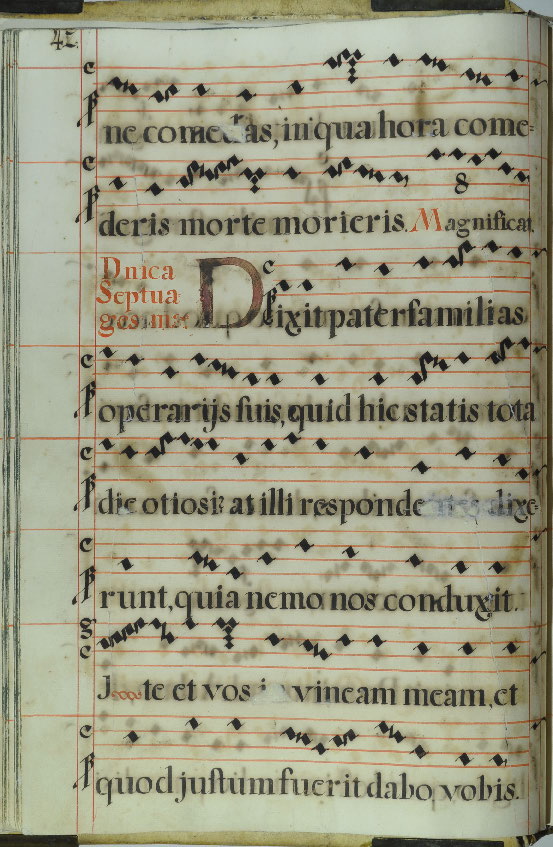 42
ne comedas, in qua hora come-
deris morte morieris. Magnificat.
8
Dnica
Septua
Dixit paterfamilias
operarijs suis, quid hic statis tota
die otiosi? at illi responde dixe-
runt, quia nemo nos conduxit.
J te et vos vineam meam, et
quod justum fuerit dabo vobis.